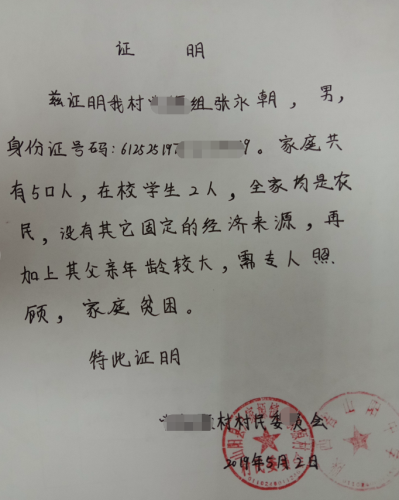 证 明
兹证明我村组张永朝，男，
身份证号码：6125251979。家庭共
有5口人，在校学生2人，全家均是农
民，没有其它固定的经济来源，再
加上其父亲年龄较大，需专人照
顾，家庭贫困。
特此证明
村村民委员会
2019年5月2日